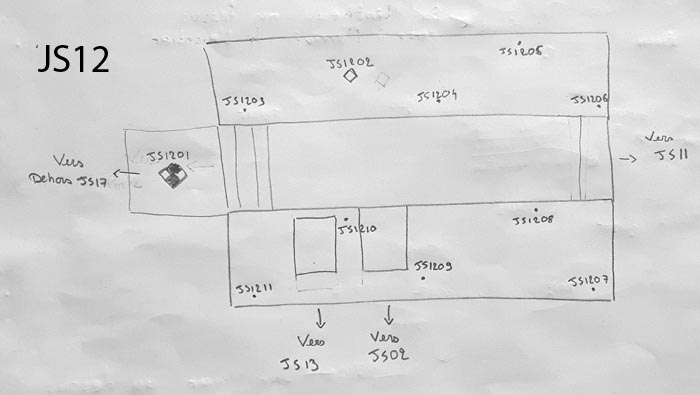 JS12
JS1205
JS1202
JS1203
JS1204
JS1206
JS1201
Vers
Dehors JS17
Vers
JS11
JS1208
JS1210
JS1209
JS1211
JS1207
Vers
JS13
Vers
JS02